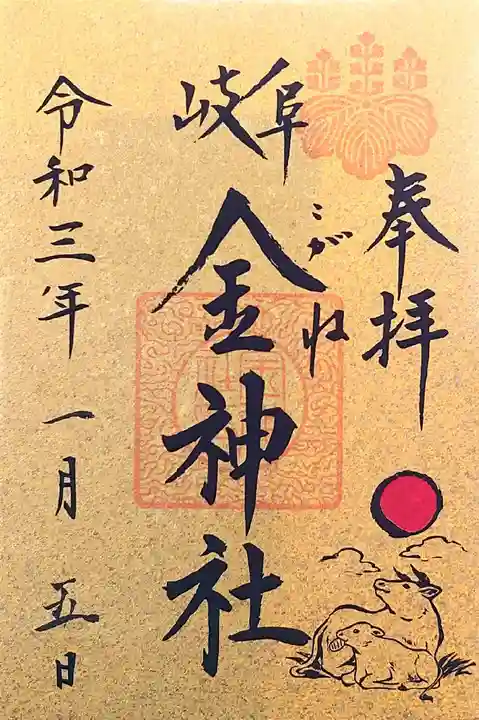 奉拝
岐阜
こがね
金神社
令和三年一月五日